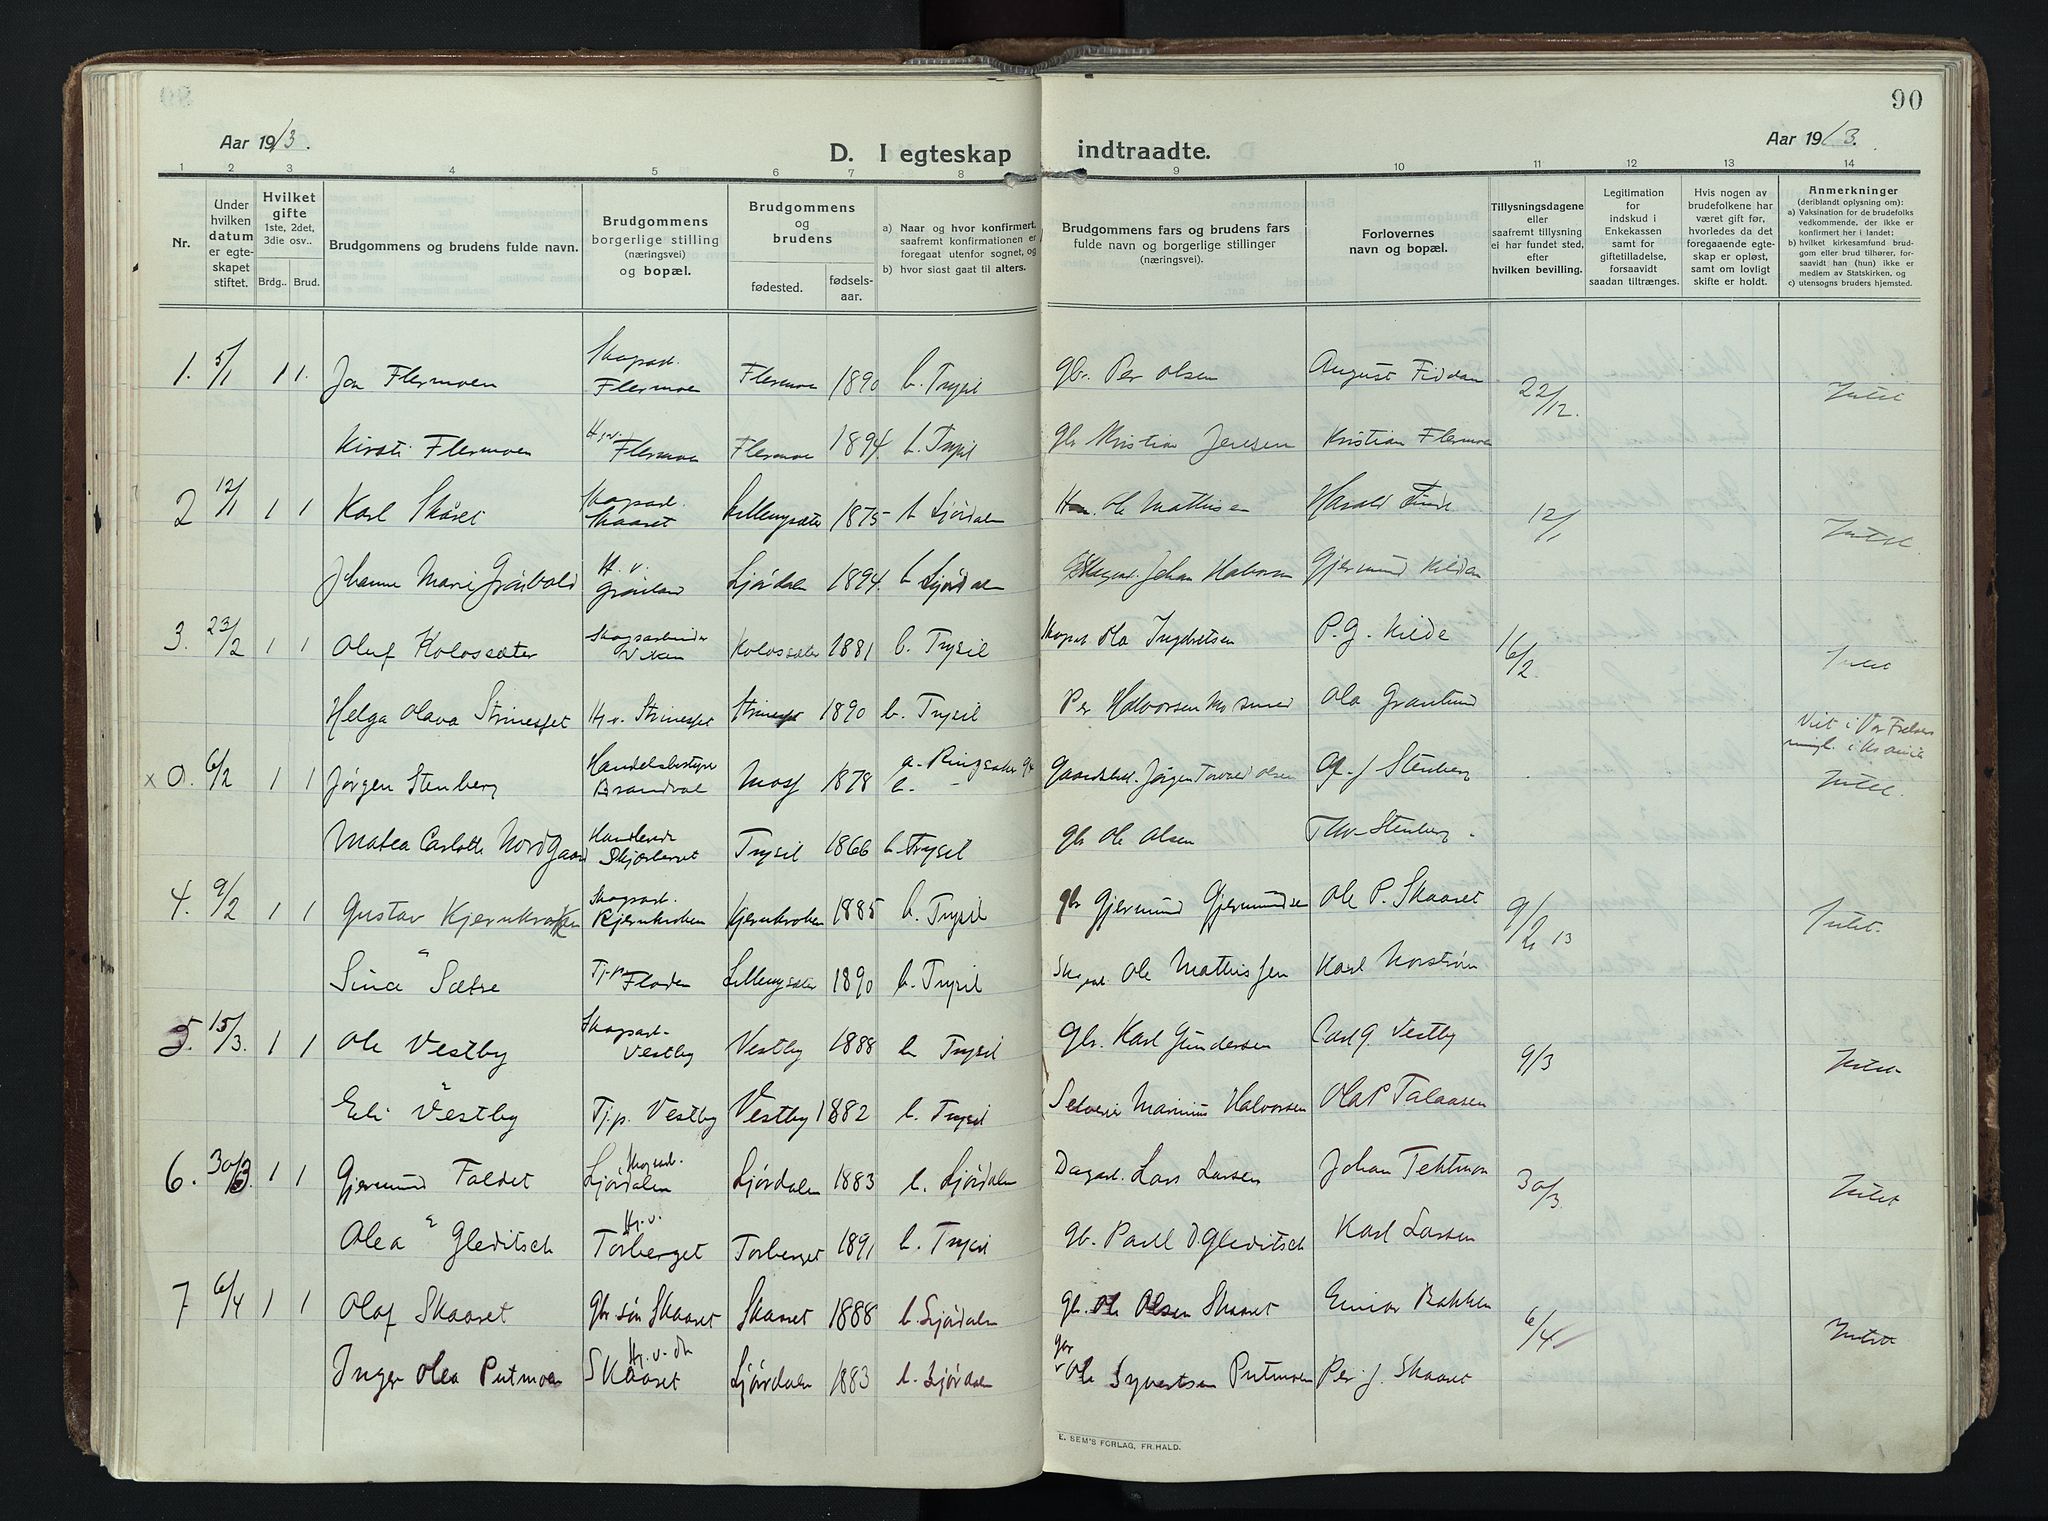 90
Aar 1913.
D. I egteskap indtraadte.
Aar 1913.
1 2 3 4 5 6 7 8 9 10 11 12 13 14
Nr.
Under hvilken datum er egteskapet stiftet.
Hvilket gifte 1ste, 2det, 3die osv..
Brdg.. Brud.
Brudgommens og brudens fulde navn.
Brudgommens borgerlige stilling (næringsvei) og bopæl.
Brudgommens og brudens
fødested. fødselsaar.
a) Naar og hvor konfirmert, saafremt konfirmationen er foregaat utenfor sognet, og
b) hvor sidst gaat til alters.
Brudgommens fars og brudens fars fulde navn og borgerlige stillinger (næringsvei).
Forlovernes navn og bopæl.
Tillysningsdagene eller saafremt tillysning ei har fundet sted, efter hvilken bevilling.
Legitimation for indskud i Enkekassen samt for giftetilladelse, forsaavidt saadan tiltrænges.
Hvis nogen av brudefolkene har været gift før, hvorledes da det foregaaende egteskap er opløst, samt om lovligt skifte er holdt.
Anmerkninger (deriblandt oplysning om):
a) Vaksination for de brudefolks vedkommende, der ikke er konfirmert her i landet;
b) hvilket kirkesamfund brudgom eller brud tilhører, forsaavidt han (hun) ikke er medlem av Statskirken, og
c) utensogns bruders hjemsted.
1. 5/1 1 1. Jon Flermoen Skogsarb. Flermoen Flermoen 1890 b. Trysil gbr. Per Olsen August Fiddan 22/12. Intet
Kirsti Flermoen H.v. Flermoen Flermoen 1894. b. Trysil gbr Kristian Jensen Kristian Flermoen
2 12/1 1 1 Karl Skåset Skogsarb. Skaaret Lillemysæter 1875 b Ljørdalen Ole Mathisen Harald 12/1 Intet.
Johanne Marie H. v. Ljørdalen 1894. b Ljørdalen Johan Halvorsen Gjermund Kilden
3. 23/2 1 1 Oluf Kolossæter Skogsarbeider Viken Kolossæter 1881 b. Trysil Skogsarb Ola Ingebretsen P. G. Kilde 16/2. Intet
Helga Olava Strinesset Hj. v. Strinesset 1890 b. Trysil Per Halvorsen Ola Granlund
Viet i Vor Frelsers
x 0. 6/2 1 1 Jørgen Stenberg Handelsbestyrer Brandval Moss 1878 a. Ringsaker b. - Jørgen Torvald Olsen Stenberg Intet.
Matea Carlotte Nordgaard Handlende Trysil 1866 b. Trysil gbr Ole Olsen Thv. Stenberg.
4. 9/2 1 1 Gustav Kjernkroken Skogsarb. Kjernkroken Kjernkroken 1885 b. Trysil gbr Gjermund Gjermundsen Ole P. Skaaret 9/2 13 Intet.
Sina Sætre Tj.p. Floden Lillemysæter 1890 b. Trysil Skogsarb. Ole Mathissen Karl Norstrøm
5. 15/3. 1 1 Ole Vestby Skogsarb. Vestby Vestby 1888 b Trysil Gbr. Karl Gundersen Carl G. Vestby 9/3 Intet.
Eli Vestby Tj.p. Vestby Vestby 1882 b. Trysil Selveier Marinius Halvorsen Ola P Talaasen
6. 30/3. 1 1 Gjermund Faldet Skogsarb. Ljørdalen Ljørdalen 1883 b. Ljørdalen Dagarb. Lars Larsen Johan Tektmon 30/3. Intet
Olea Gleditsch Hj.v. Torberget Torberget 1891 b. Trysil gb. Paul D Gleditsch Karl Larsen
7 6/4 1 1 Olaf Skaaret gbr søn Skaaret Skaaret 1888 b. Ljørdalen gb. Ole Olsen Skaaret Einar Bakken 6/4 Intet
Inger Olea Putmoen Hj. v. Skaaret Ljørdalen 1883 b. Ljørdalen gbr Ole Syvertsen Putmoen Per J. Skaaret
E. SEM'S FORLAG, FR.HALD.